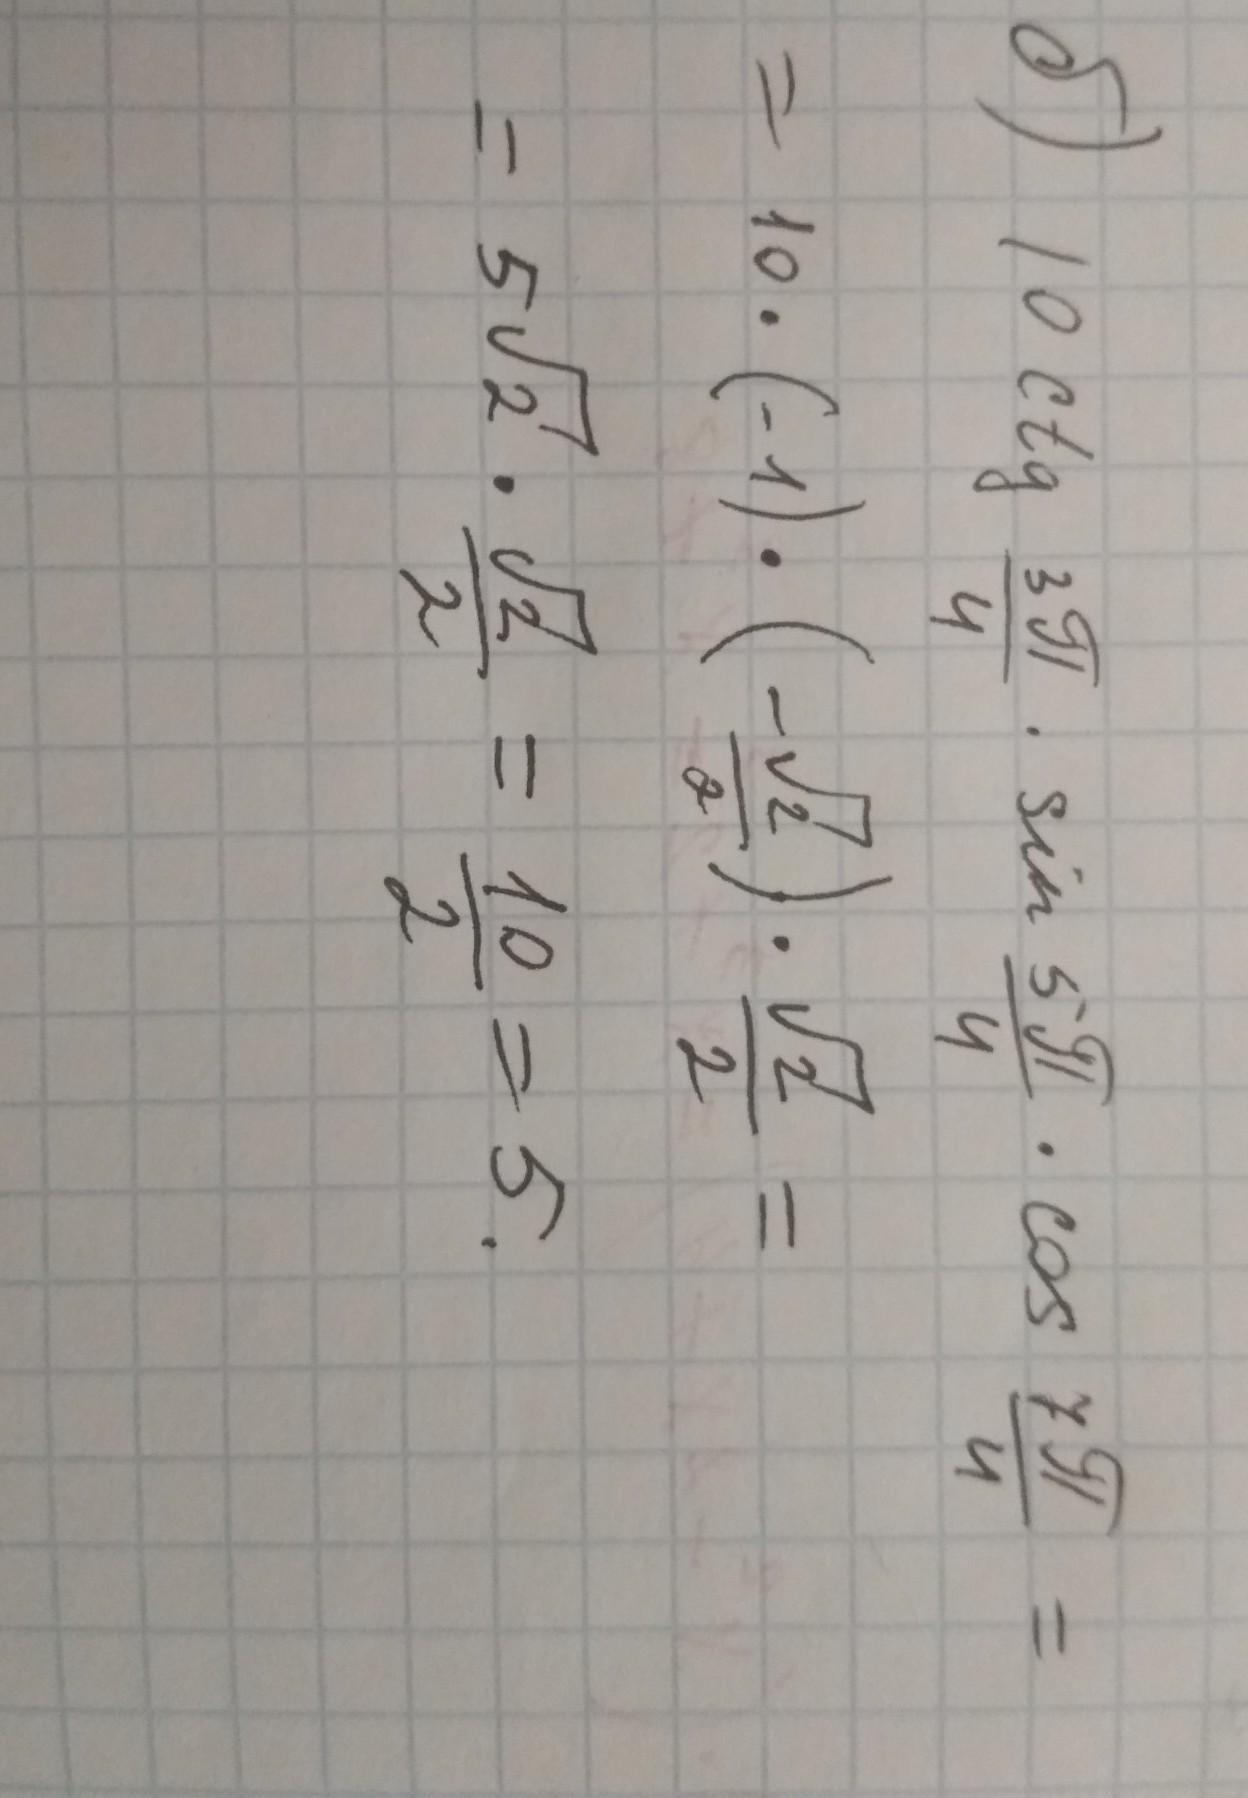 б) 10 ctg 3π/4 · sin 5π/4 · cos 7π/4 =
= 10 · (-1) · (-√2/2) · √2/2 =
= 5√2 · √2/2 = 10/2 = 5.